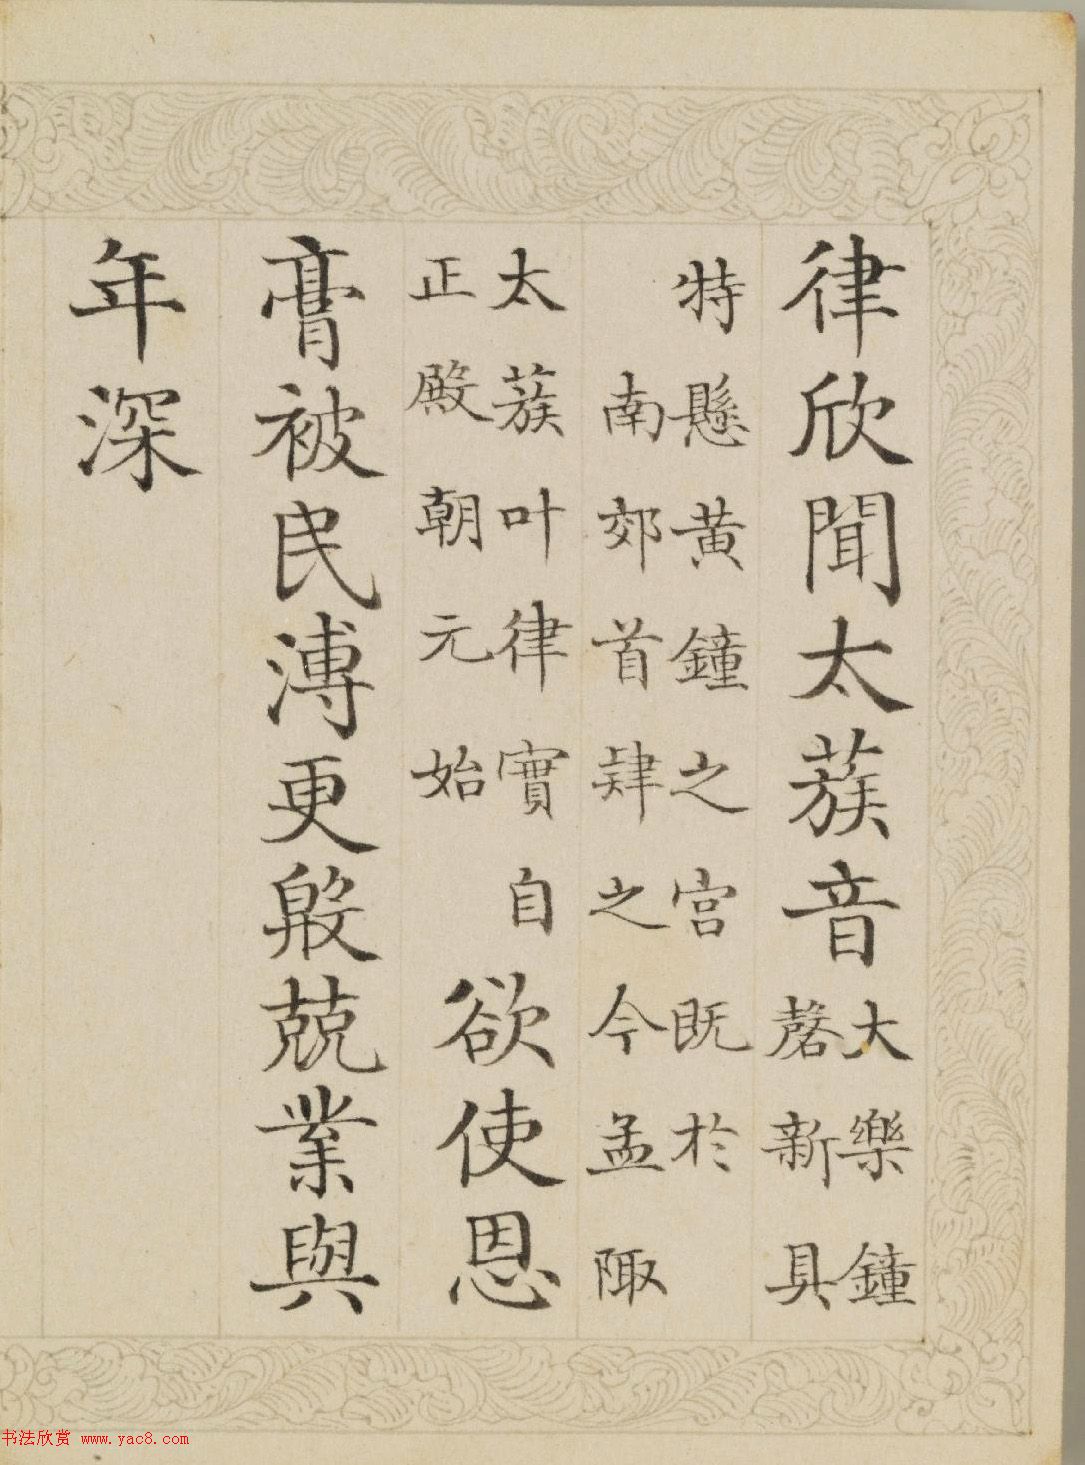 律欣聞太蔟音大樂鐘磬新具
特懸黄鐘之宫既於
南郊首肆之今孟陬
太蔟叶律實自正殿朝元始欲使恩
膏被民溥更殷兢業與
年深
书法欣赏 www.yac8.com